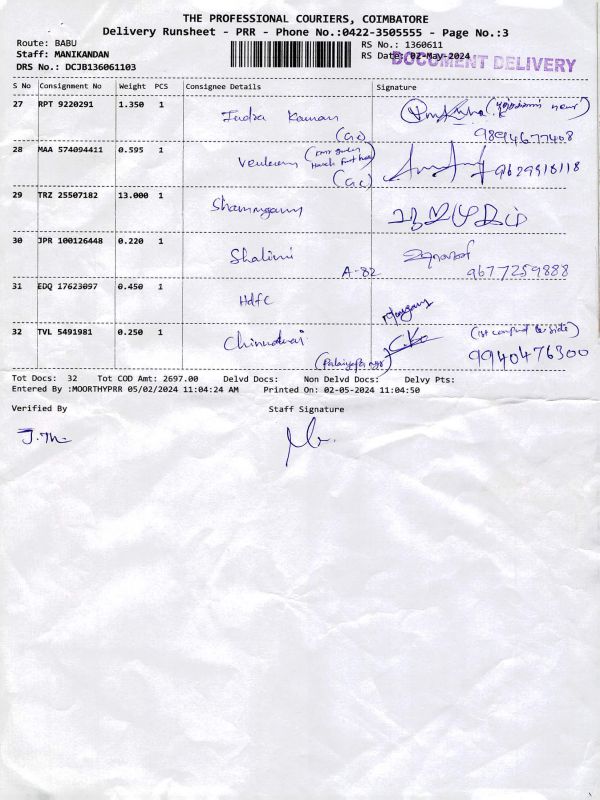 THE PROFESSIONAL COURIERS, COIMBATORE
Delivery Runsheet - PRR - Phone No.:0422-3505555 - Page No.:3
Route: BABU
Staff: MANIKANDAN
DRS No.: DCJB136061103
RS No.: 1360611
RS Date: 02-May-2024
DOCUMENT DELIVERY
S No Consignment No Weight PCS Consignee Details Signature
27 RPT 9220291 1.350 1 Indra Kannan
(GC) 9894677408
28 MAA 574094411 0.595 1
(GC) 9629918118
29 TRZ 25507182 13.000 1 Shanmugam
30 JPR 100126448 0.220 1 Shalini
A-82 9677259888
31 EDQ 17623097 0.450 1 Hdfc
32 TVL 5491981 0.250 1 Chinnadurai
9940476300
Tot Docs: 32 Tot COD Amt: 2697.00 Delvd Docs: Non Delvd Docs: Delvy Pts:
Entered By :MOORTHYPRR 05/02/2024 11:04:24 AM Printed On: 02-05-2024 11:04:50
Verified By Staff Signature